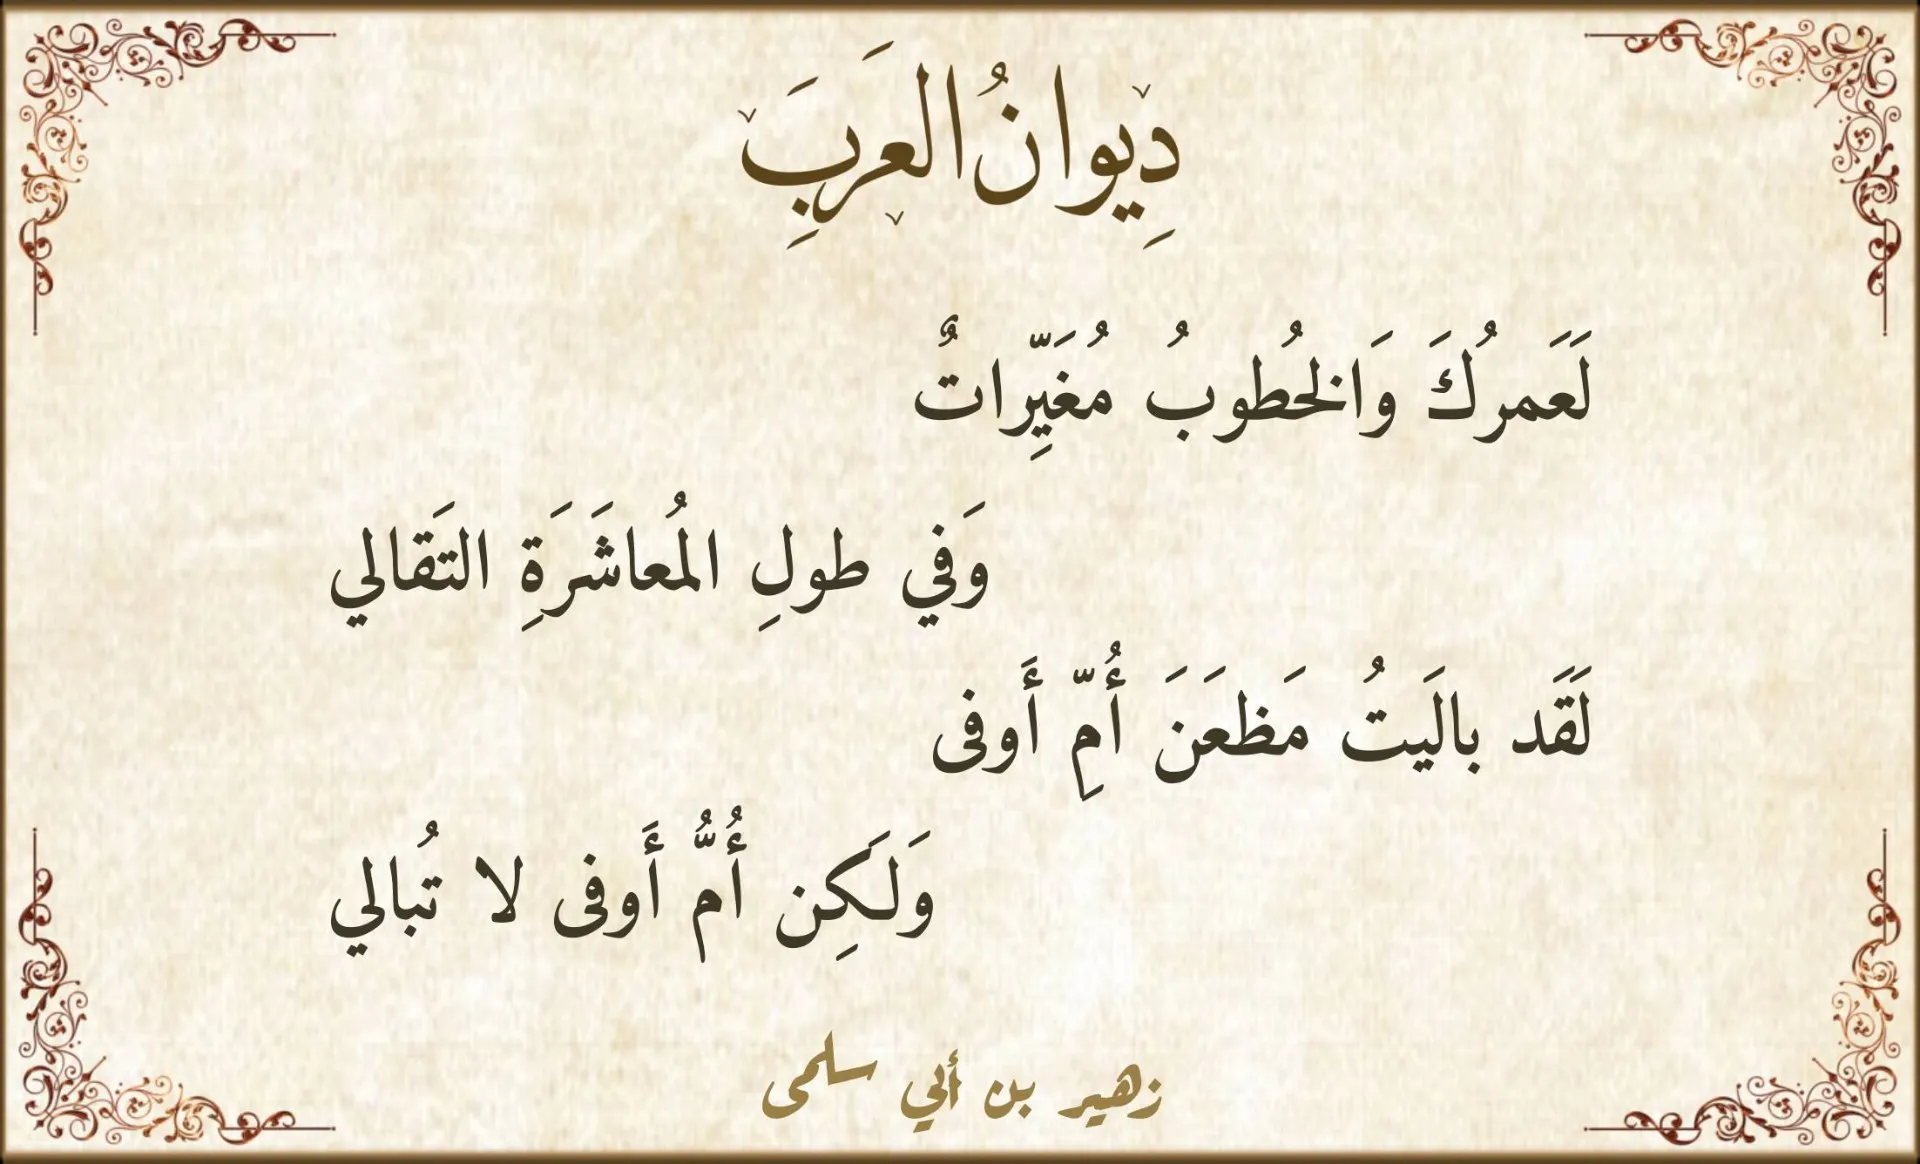 دِيوانُ العَرَبِ
لَعَمرُكَ وَالخُطوبُ مُغَيِّراتٌ
وَفي طولِ المُعاشَرَةِ التَقالي
لَقَد بالَيتُ مَظعَنَ أُمِّ أَوفى
وَلَكِن أُمُّ أَوفى لا تُبالي
زهير بن أبي سلمى